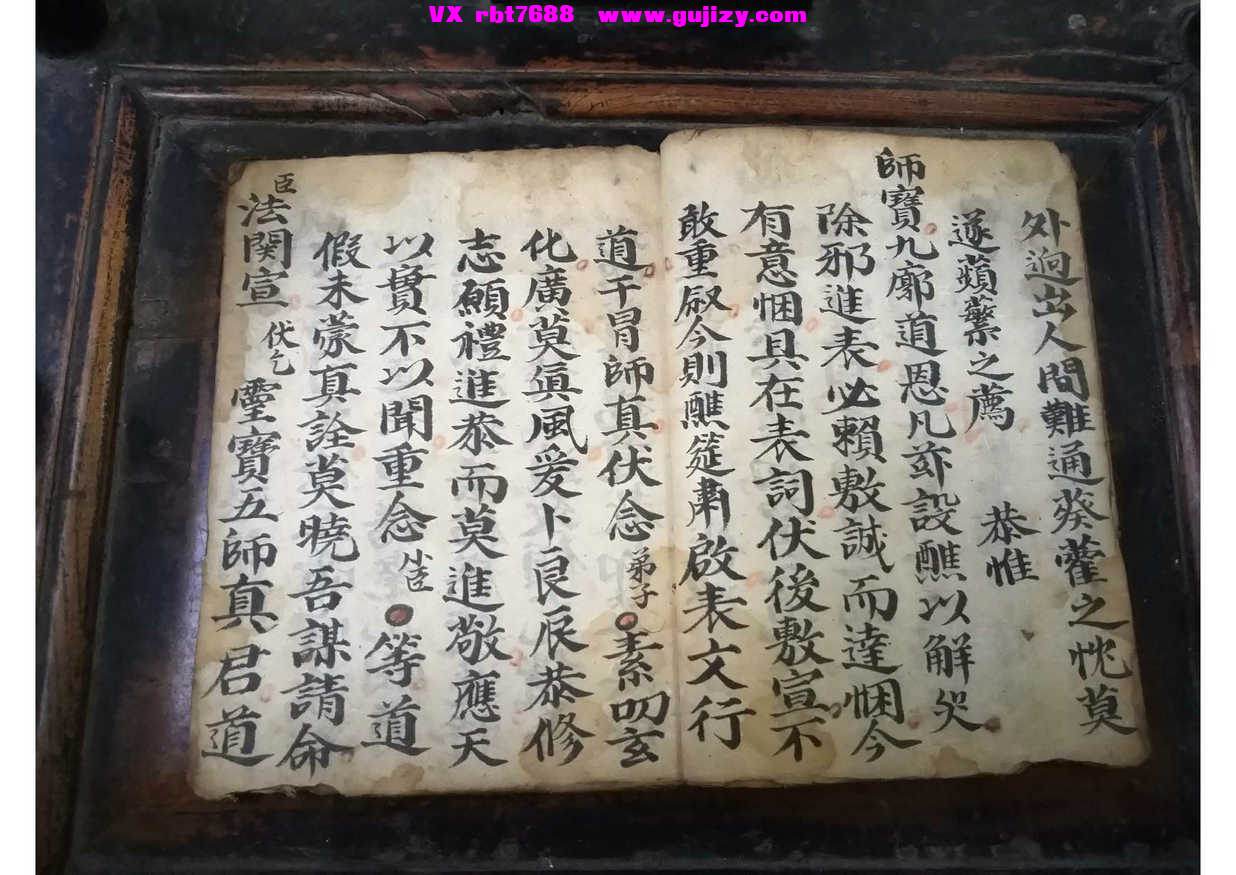 VX rbt7688 www.gujizy.com
外逈出人間難通葵藿之忱莫
遂蘋蘩之薦 恭惟
師寶九廓道恩凡所設醮以解災
除邪進表必賴敷誠而達悃今
有意悃具在表詞伏後敷宣不
敢重叙今則醮筵肅啟表文行
道干冒師真伏念弟子素叨玄
化廣莫真風爰卜良辰恭修
志願禮進恭而莫進敬應天
以實不以聞重念小臣等道
假未蒙真詮莫曉吾謀請命
臣法関宣 伏乞 靈寶五師真君道